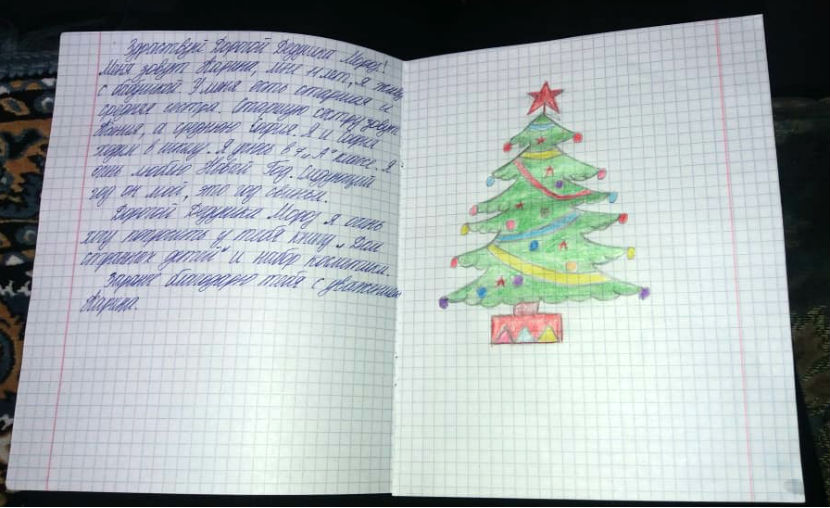 Здраствуй Дорогой Дедушка Мороз!
Меня зовут Карина, мне 11 лет, я живу
с бабушкой. У меня есть старшая и
средняя сестра. Старшую сестру зовут
а среднюю София. Я и София
ходим в школу. Я учусь в 7 „А" классе. Я
очень люблю Новый Год. Следующий
год он мой, это год свиньи.
Дорогой Дедушка Мороз я очень
хочу попросить у тебя книгу „Дом
странных детей" и набор косметики.
Заранее благодарю тебя с уважением
Карина.